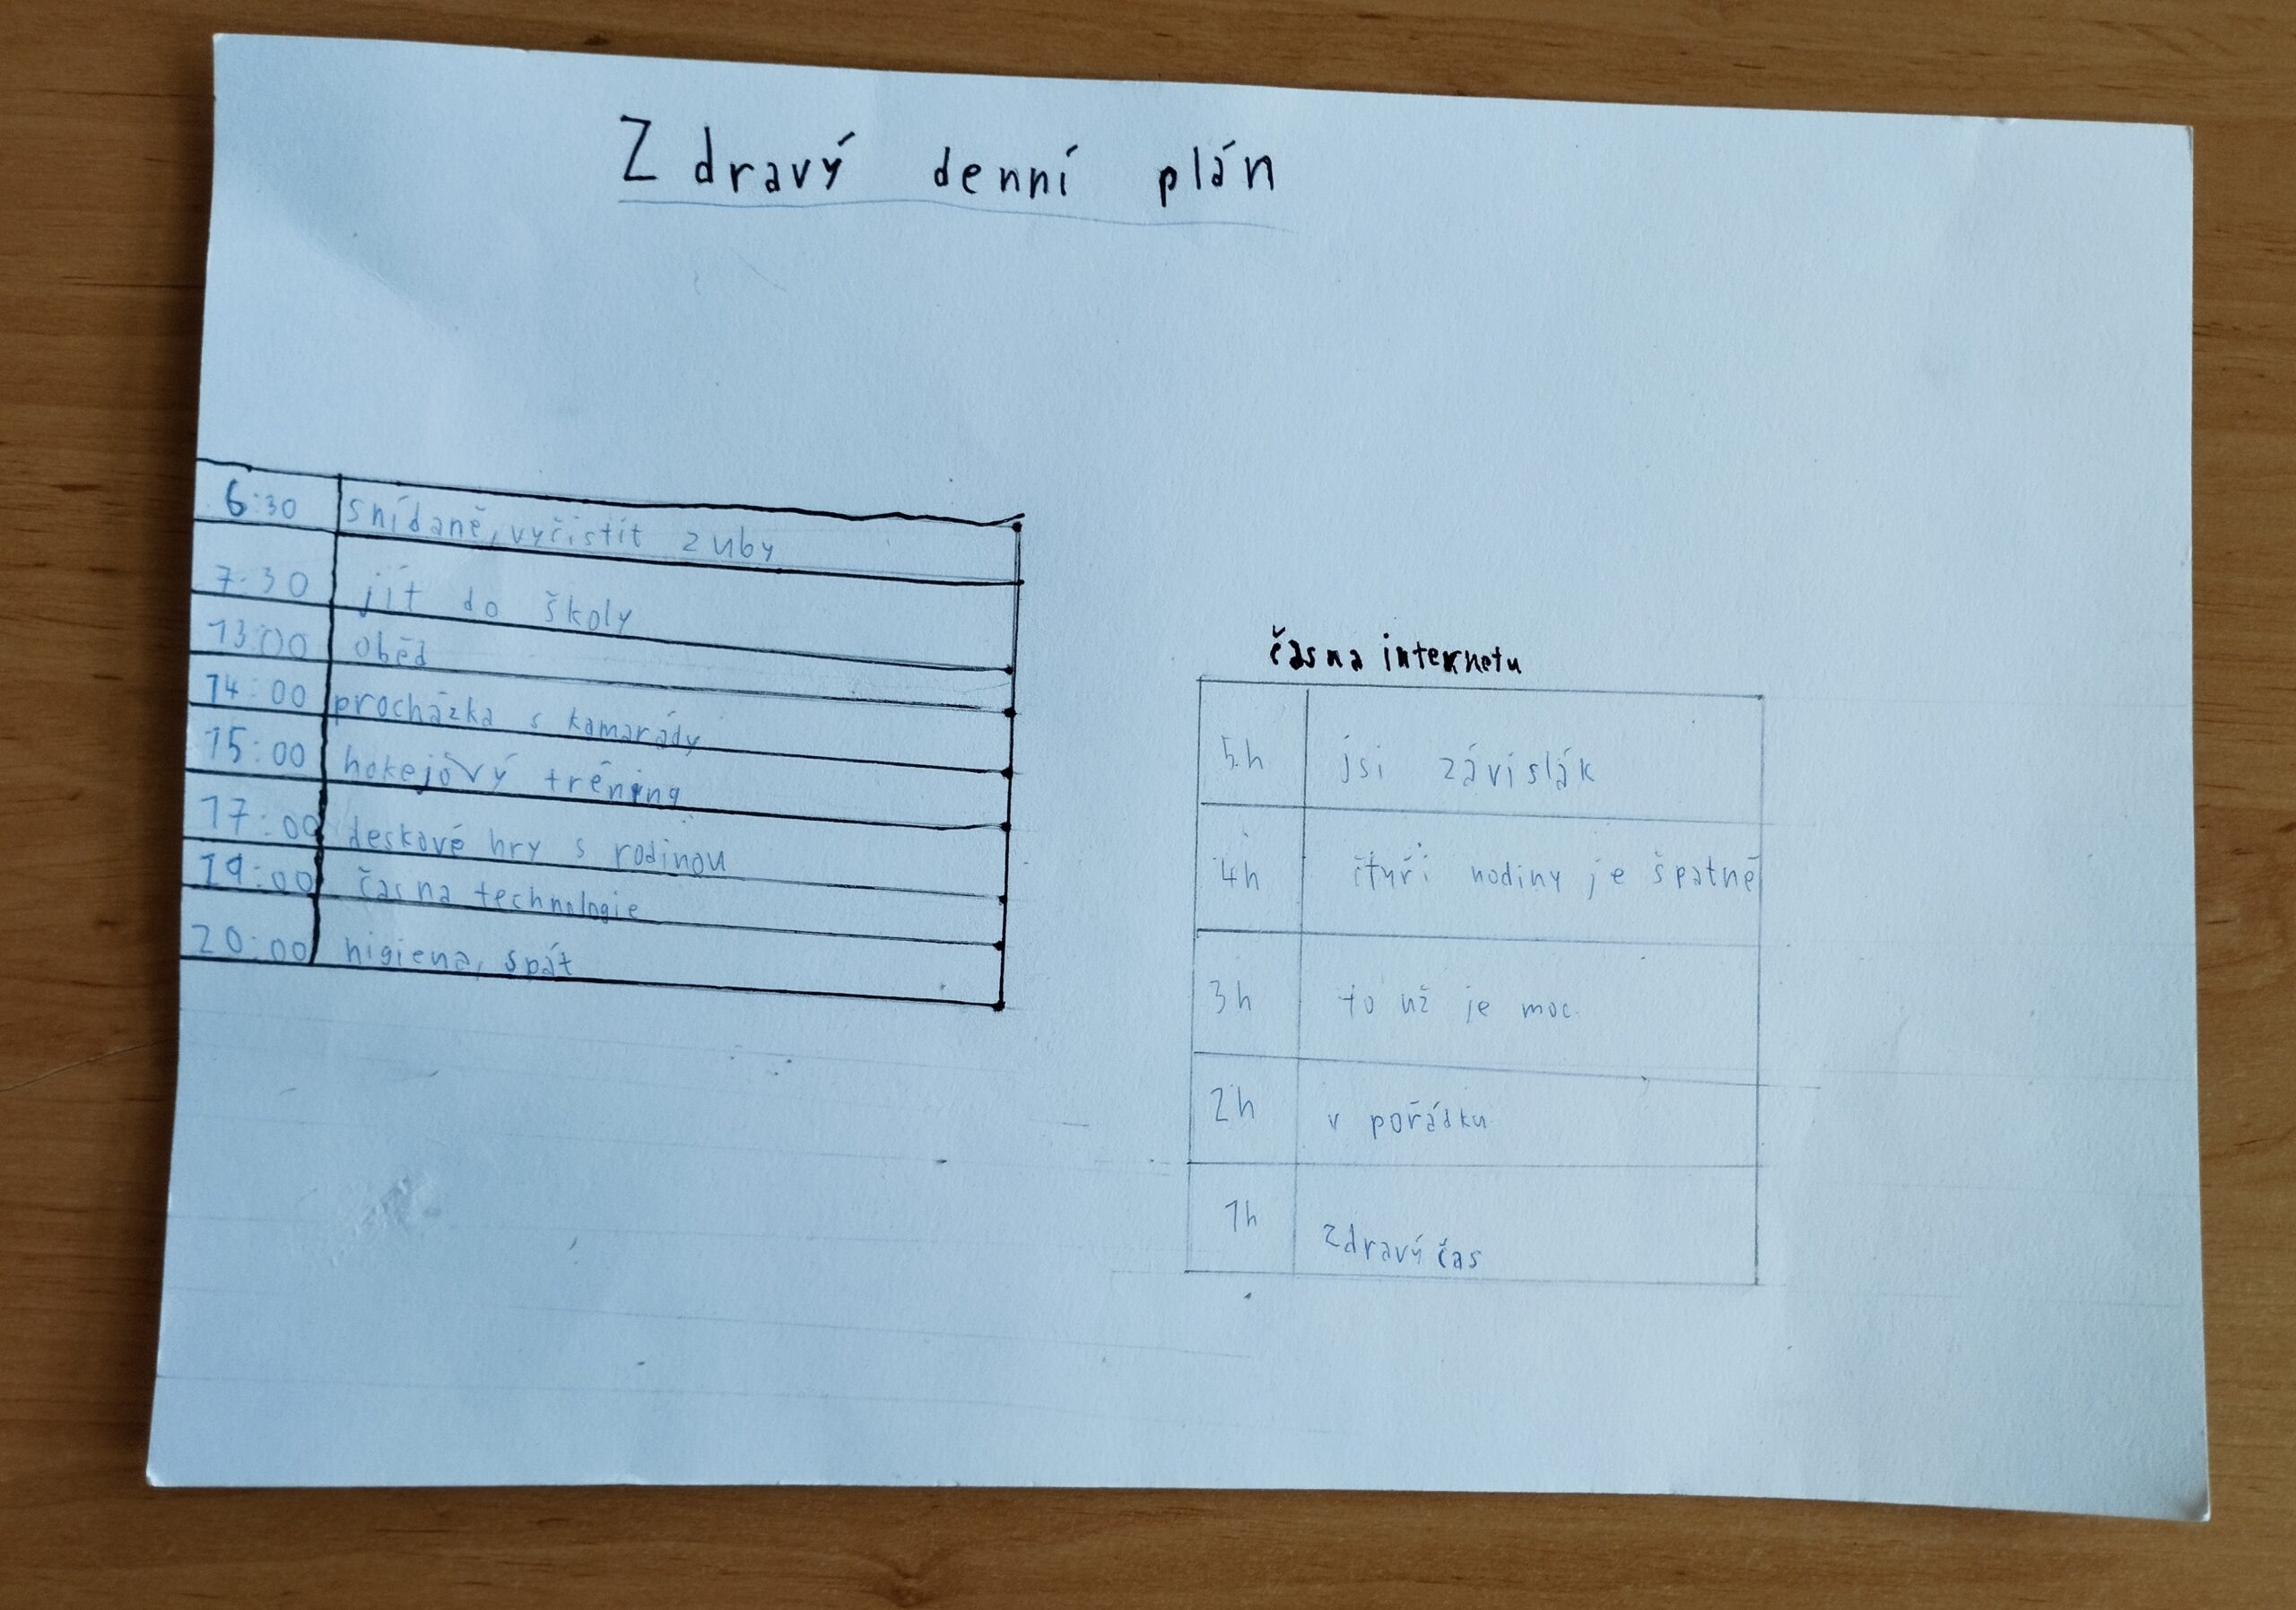 Zdravý denní plán
6:30 snídaně, vyčistit zuby
7:30 jít do školy
13:00 oběd
14:00 procházka s kamarády
15:00 hokejový tréning
17:00 deskové hry s rodinou
19:00 čas na technologie
20:00 higiena, spát
čas na internetu
5h jsi závislák
4h čtyři hodiny je špatně
3h to už je moc
2h v pořádku
1h zdravý čas